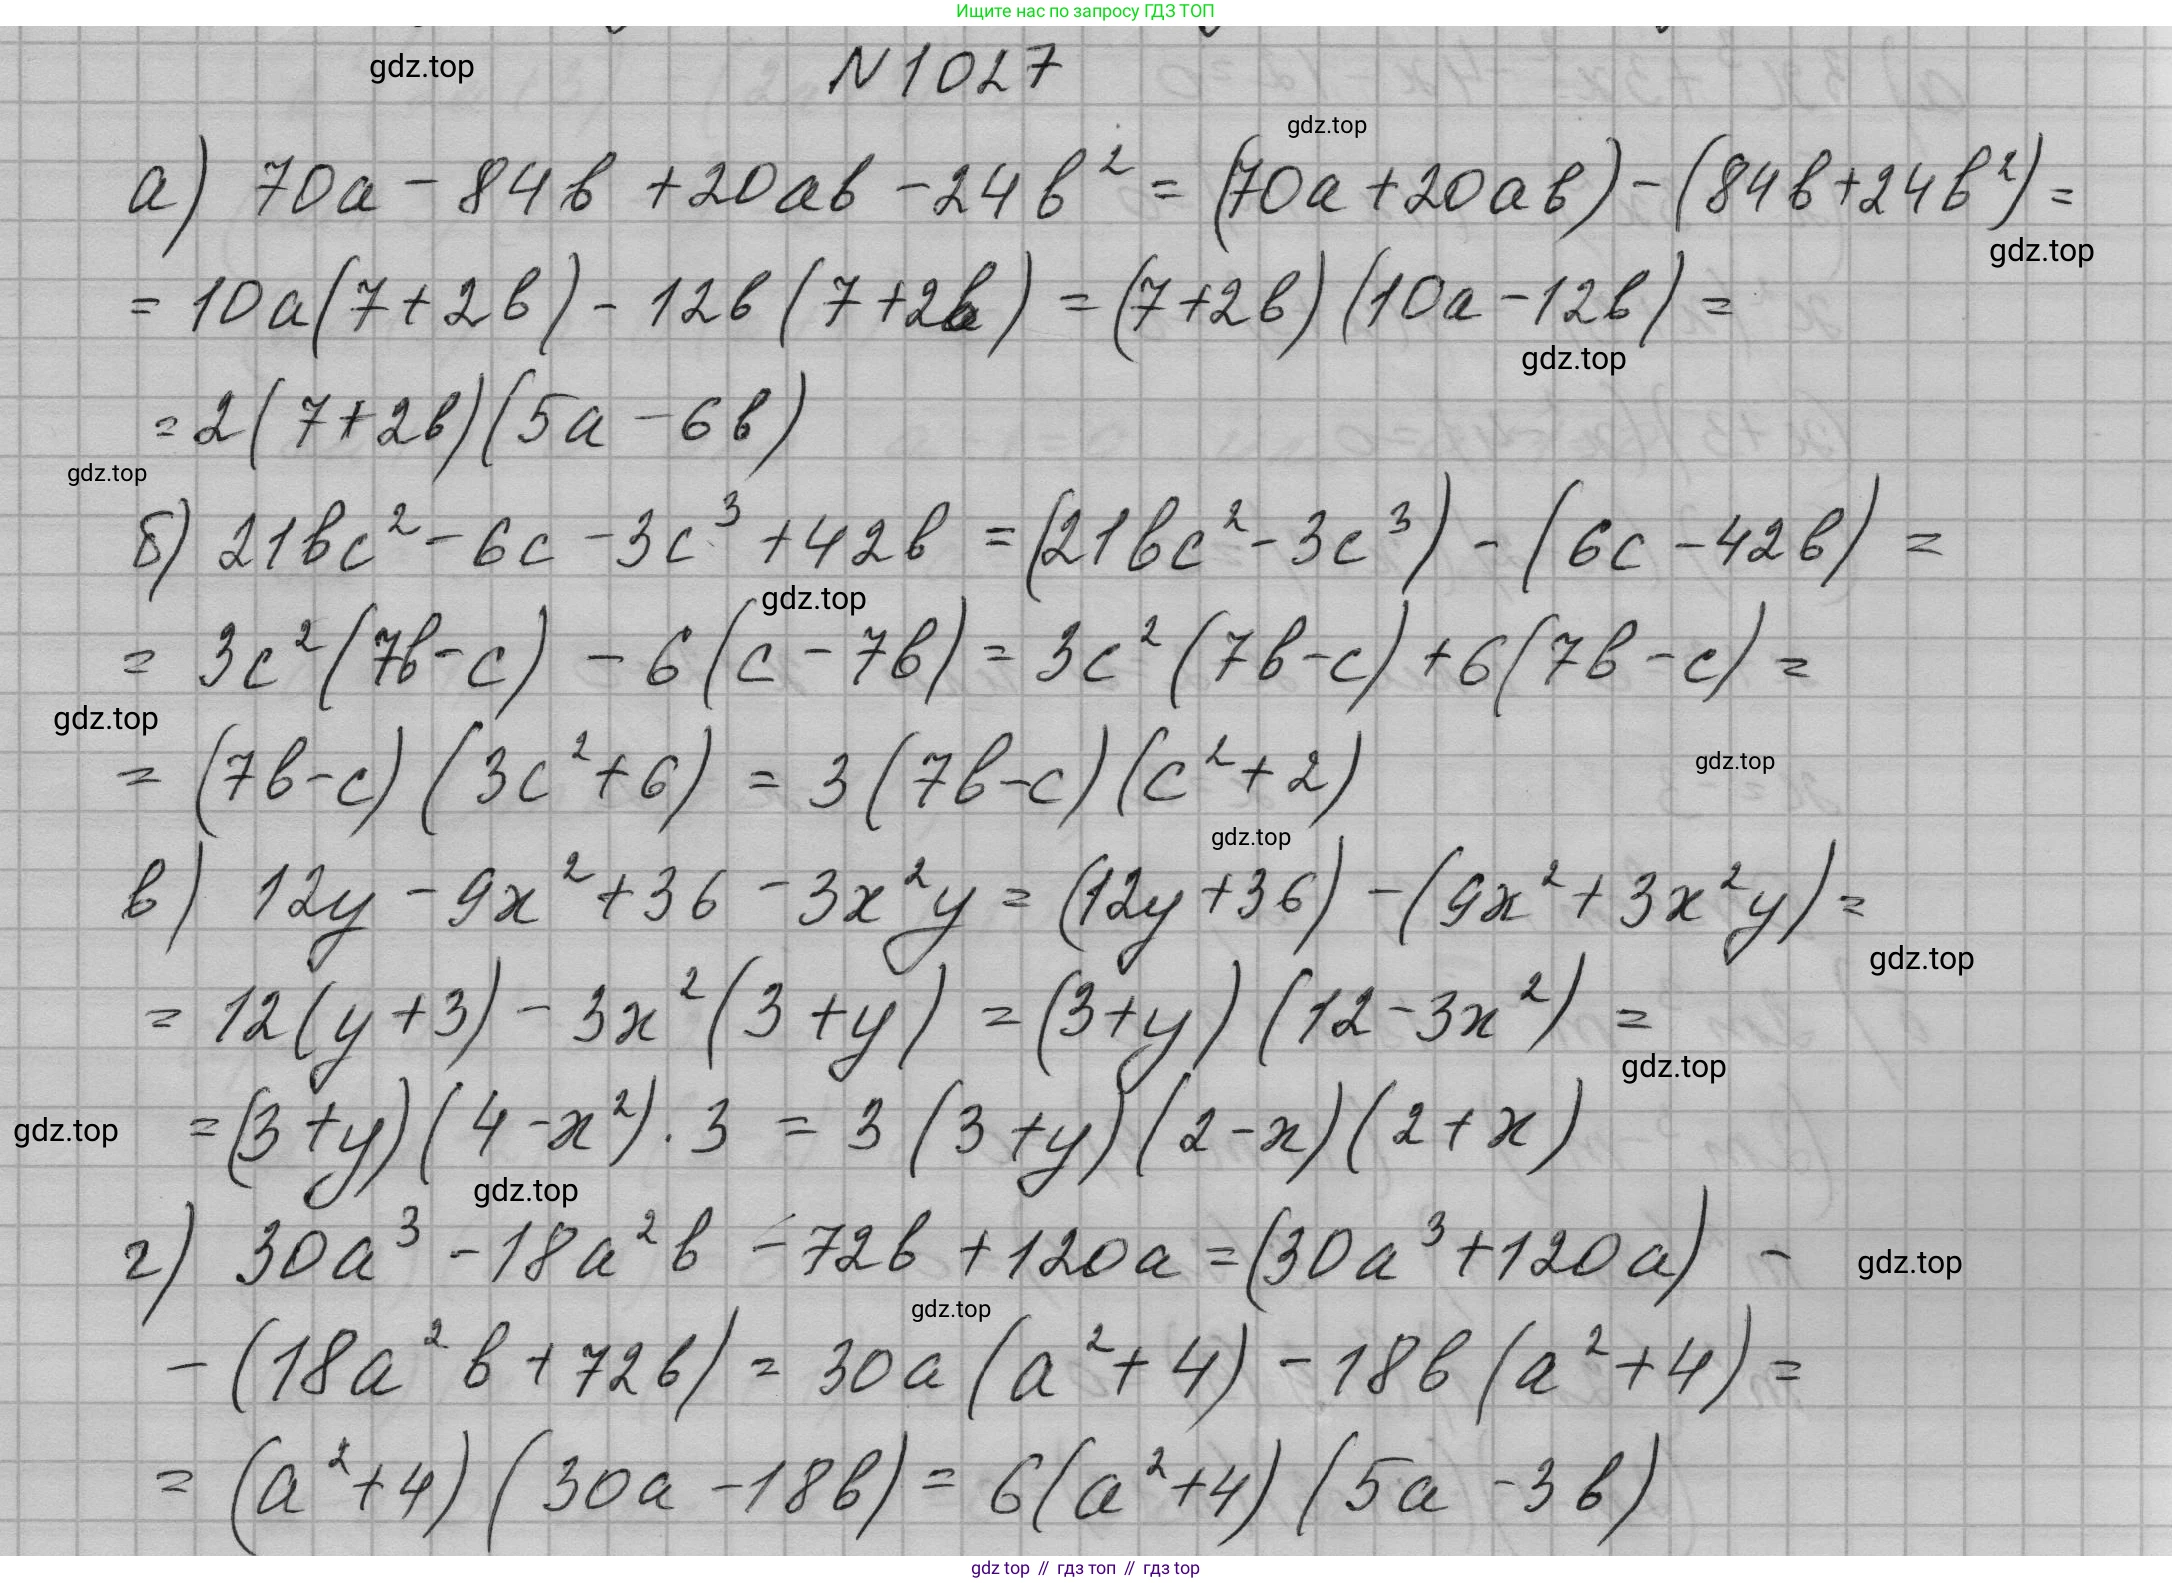 Ищите нас по запросу ГДЗ ТОП
N1027
gdz.top
gdz.top
а) 70a - 84b + 20ab - 24b² = (70a + 20ab) - (84b + 24b²) =
gdz.top
= 10a(7 + 2b) - 12b(7 + 2b) = (7 + 2b)(10a - 12b) =
gdz.top
= 2(7 + 2b)(5a - 6b)
gdz.top
б) 21bc² - 6c - 3c³ + 42b = (21bc² - 3c³) - (6c - 42b) =
gdz.top
= 3c²(7b - c) - 6(c - 7b) = 3c²(7b - c) + 6(7b - c) =
gdz.top
= (7b - c)(3c² + 6) = 3(7b - c)(c² + 2)
gdz.top
gdz.top
в) 12y - 9x² + 36 - 3x²y = (12y + 36) - (9x² + 3x²y) =
gdz.top
= 12(y + 3) - 3x²(3 + y) = (3 + y)(12 - 3x²) =
gdz.top
gdz.top
= (3 + y)(4 - x²) · 3 = 3(3 + y)(2 - x)(2 + x)
gdz.top
г) 30a³ - 18a²b - 72b + 120a = (30a³ + 120a) -
gdz.top
gdz.top
- (18a²b + 72b) = 30a(a² + 4) - 18b(a² + 4) =
= (a² + 4)(30a - 18b) = 6(a² + 4)(5a - 3b)
gdz top // гдз топ // гдз top